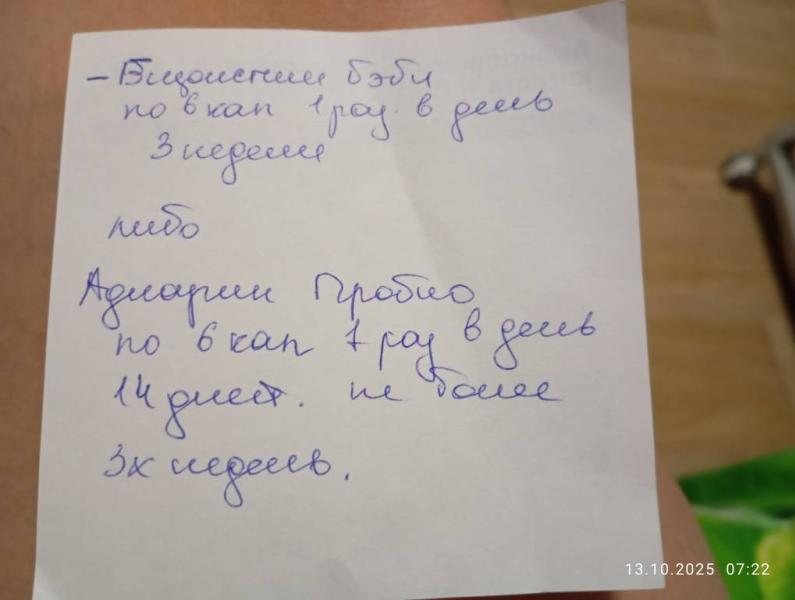 - Бицоистин бэби
по 6 кап 1 раз в день
3 недели
либо
Адиарин Пробио
по 6 кап 1 раз в день
14 дней. не более
3х недель.
13.10.2025 07:22